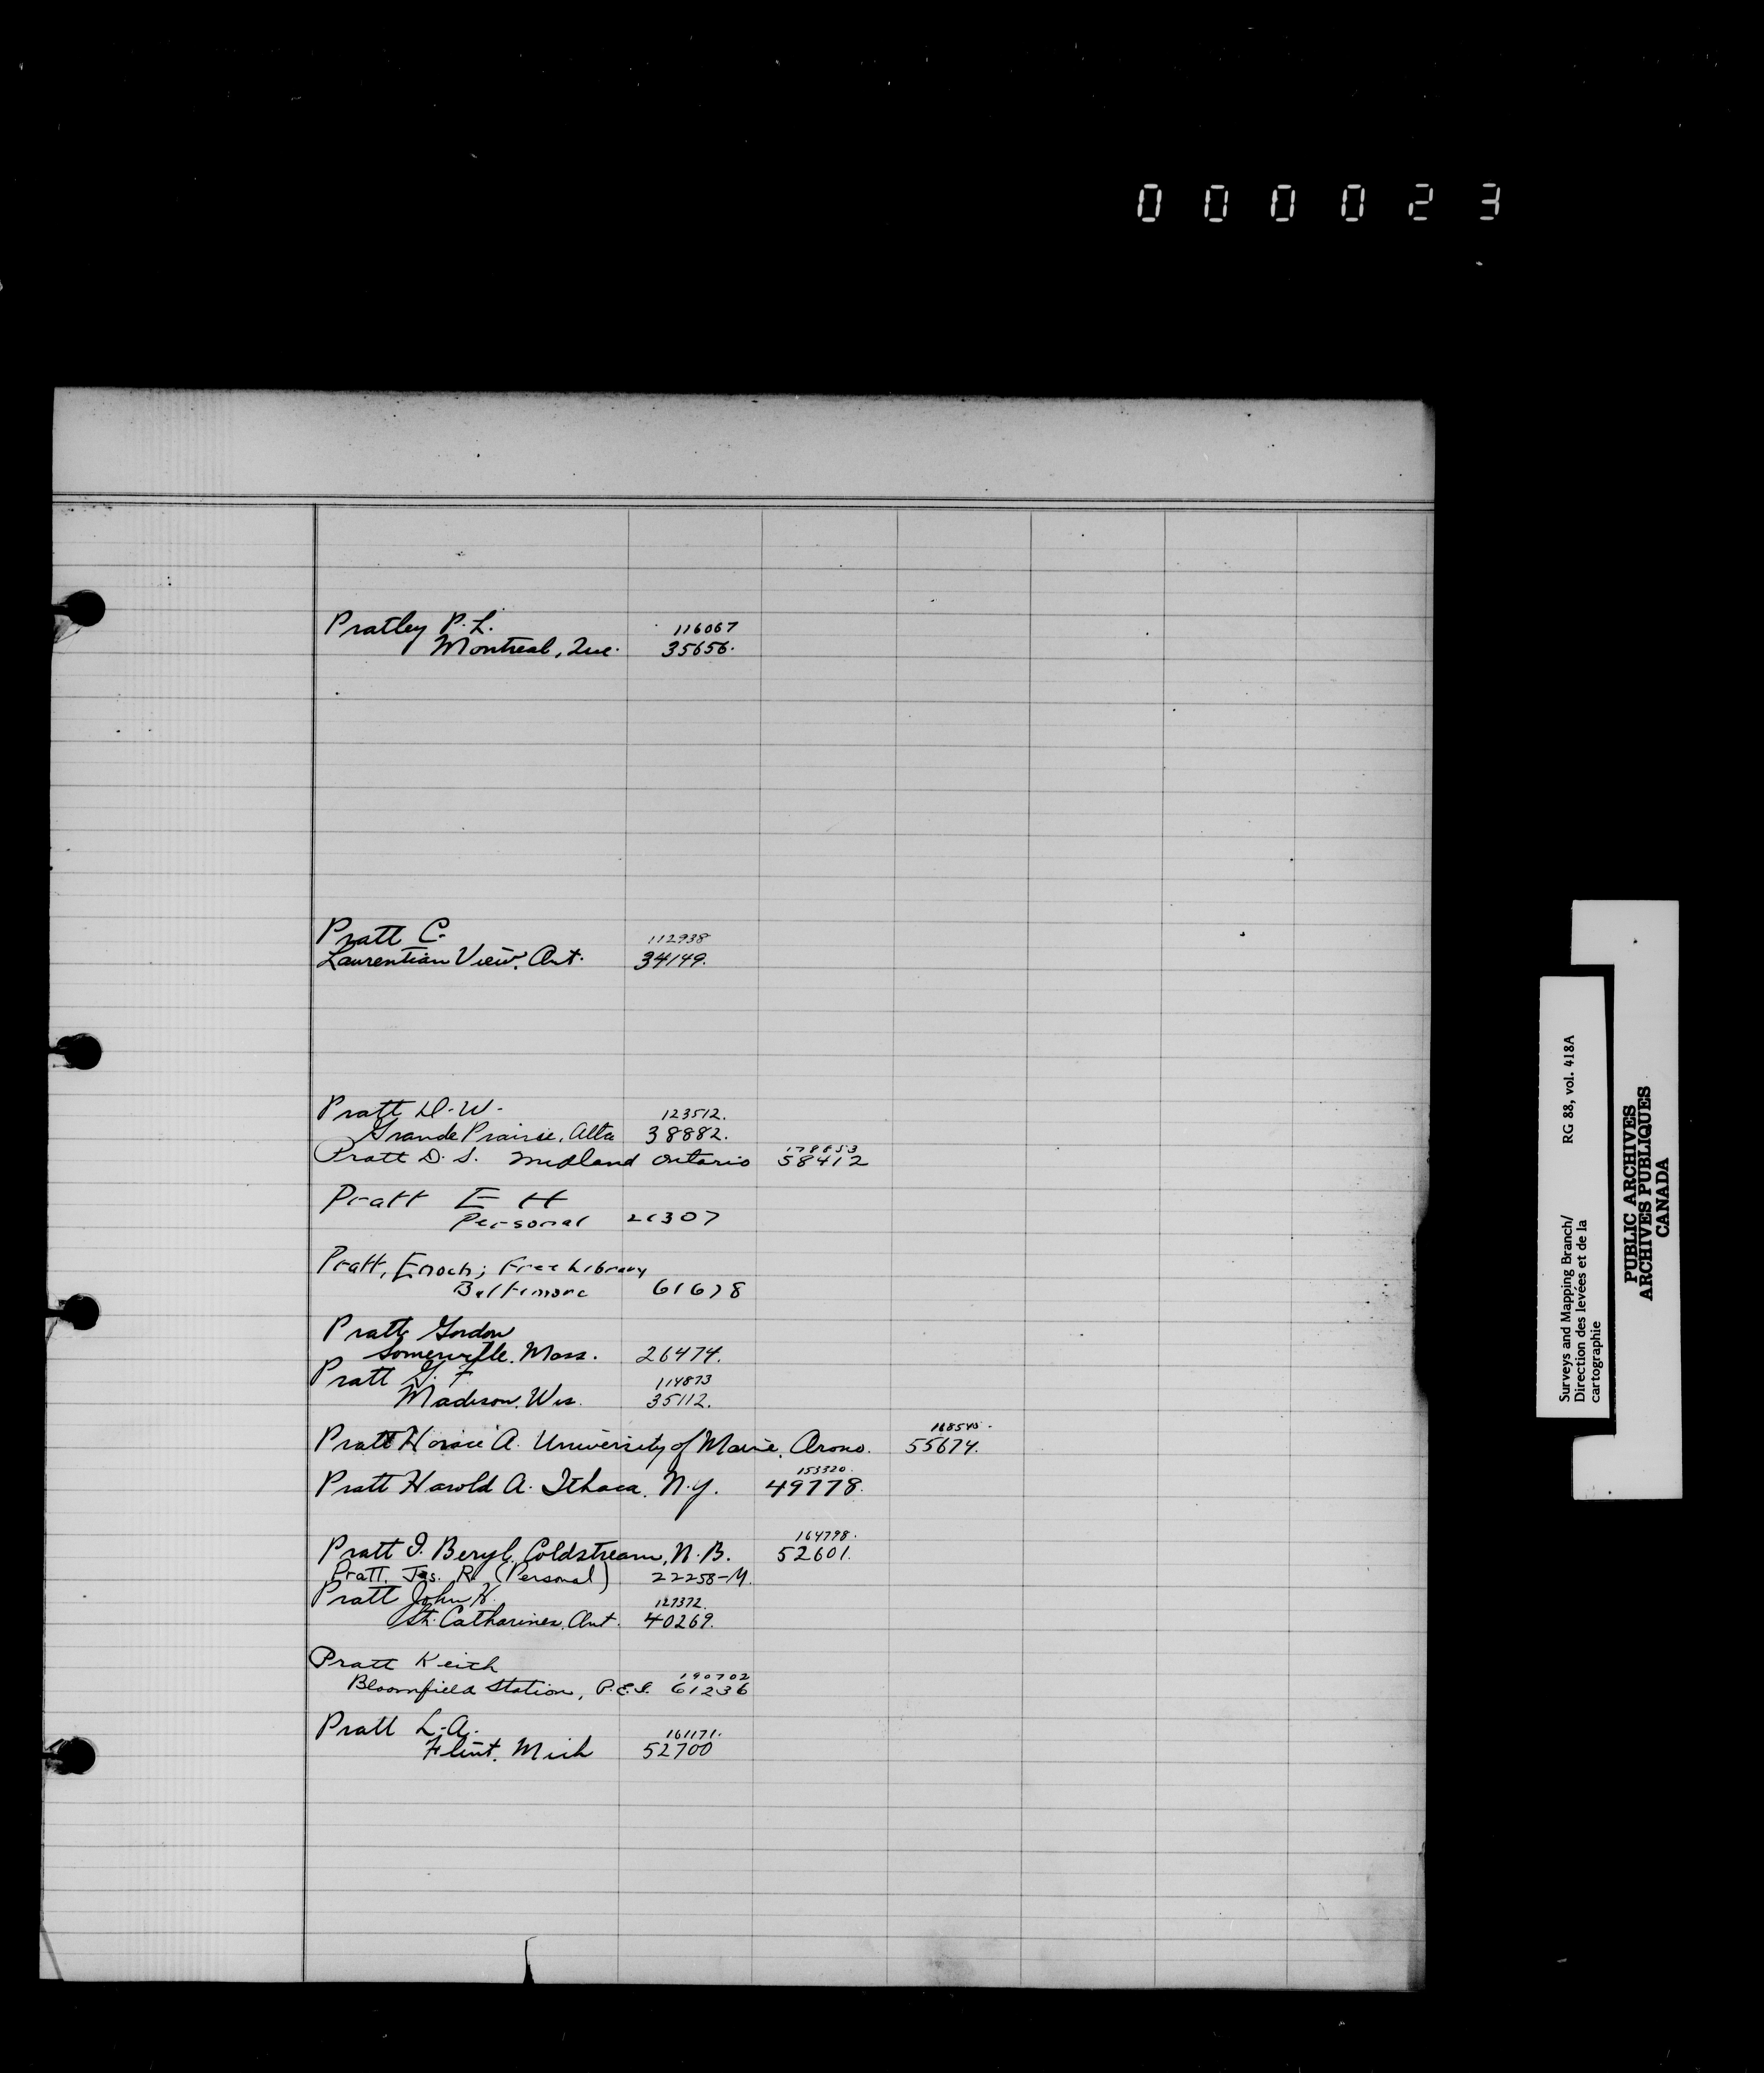 0 0 0 0 2 3
Pratley P. L. 116067
Montreal, Que. 35656.
Pratt C. 112938
Laurentian View, Ont. 34149.
Pratt D. W. 123512.
Grande Prairie, Alta 38882.
178853
Pratt D. S. Midland Ontario 58412
Pratt E H
Personal 21307
Pratt, Enoch; Free Library
Baltimore 61678
Pratt Gordon
Somerville, Mass. 26474.
Pratt G. F. 114873
Madison, Wis. 35112.
168540.
Pratt Horace A. University of Maine, Orono. 55674.
153320.
Pratt Harold A. Ithaca, N.Y. 49778.
164798.
Pratt I. Beryl, Coldstream, N.B. 52601.
Pratt, Jas. R. (Personal) 22258-M.
Pratt John H. 127372.
St. Catharines, Ont. 40269.
Pratt Keith 190702
Bloomfield Station, P.E.I. 61236
Pratt L. A. 161171.
Flint, Mich 52700
Surveys and Mapping Branch/ RG 88, vol. 418A
Direction des levées et de la
cartographie
PUBLIC ARCHIVES
ARCHIVES PUBLIQUES
CANADA